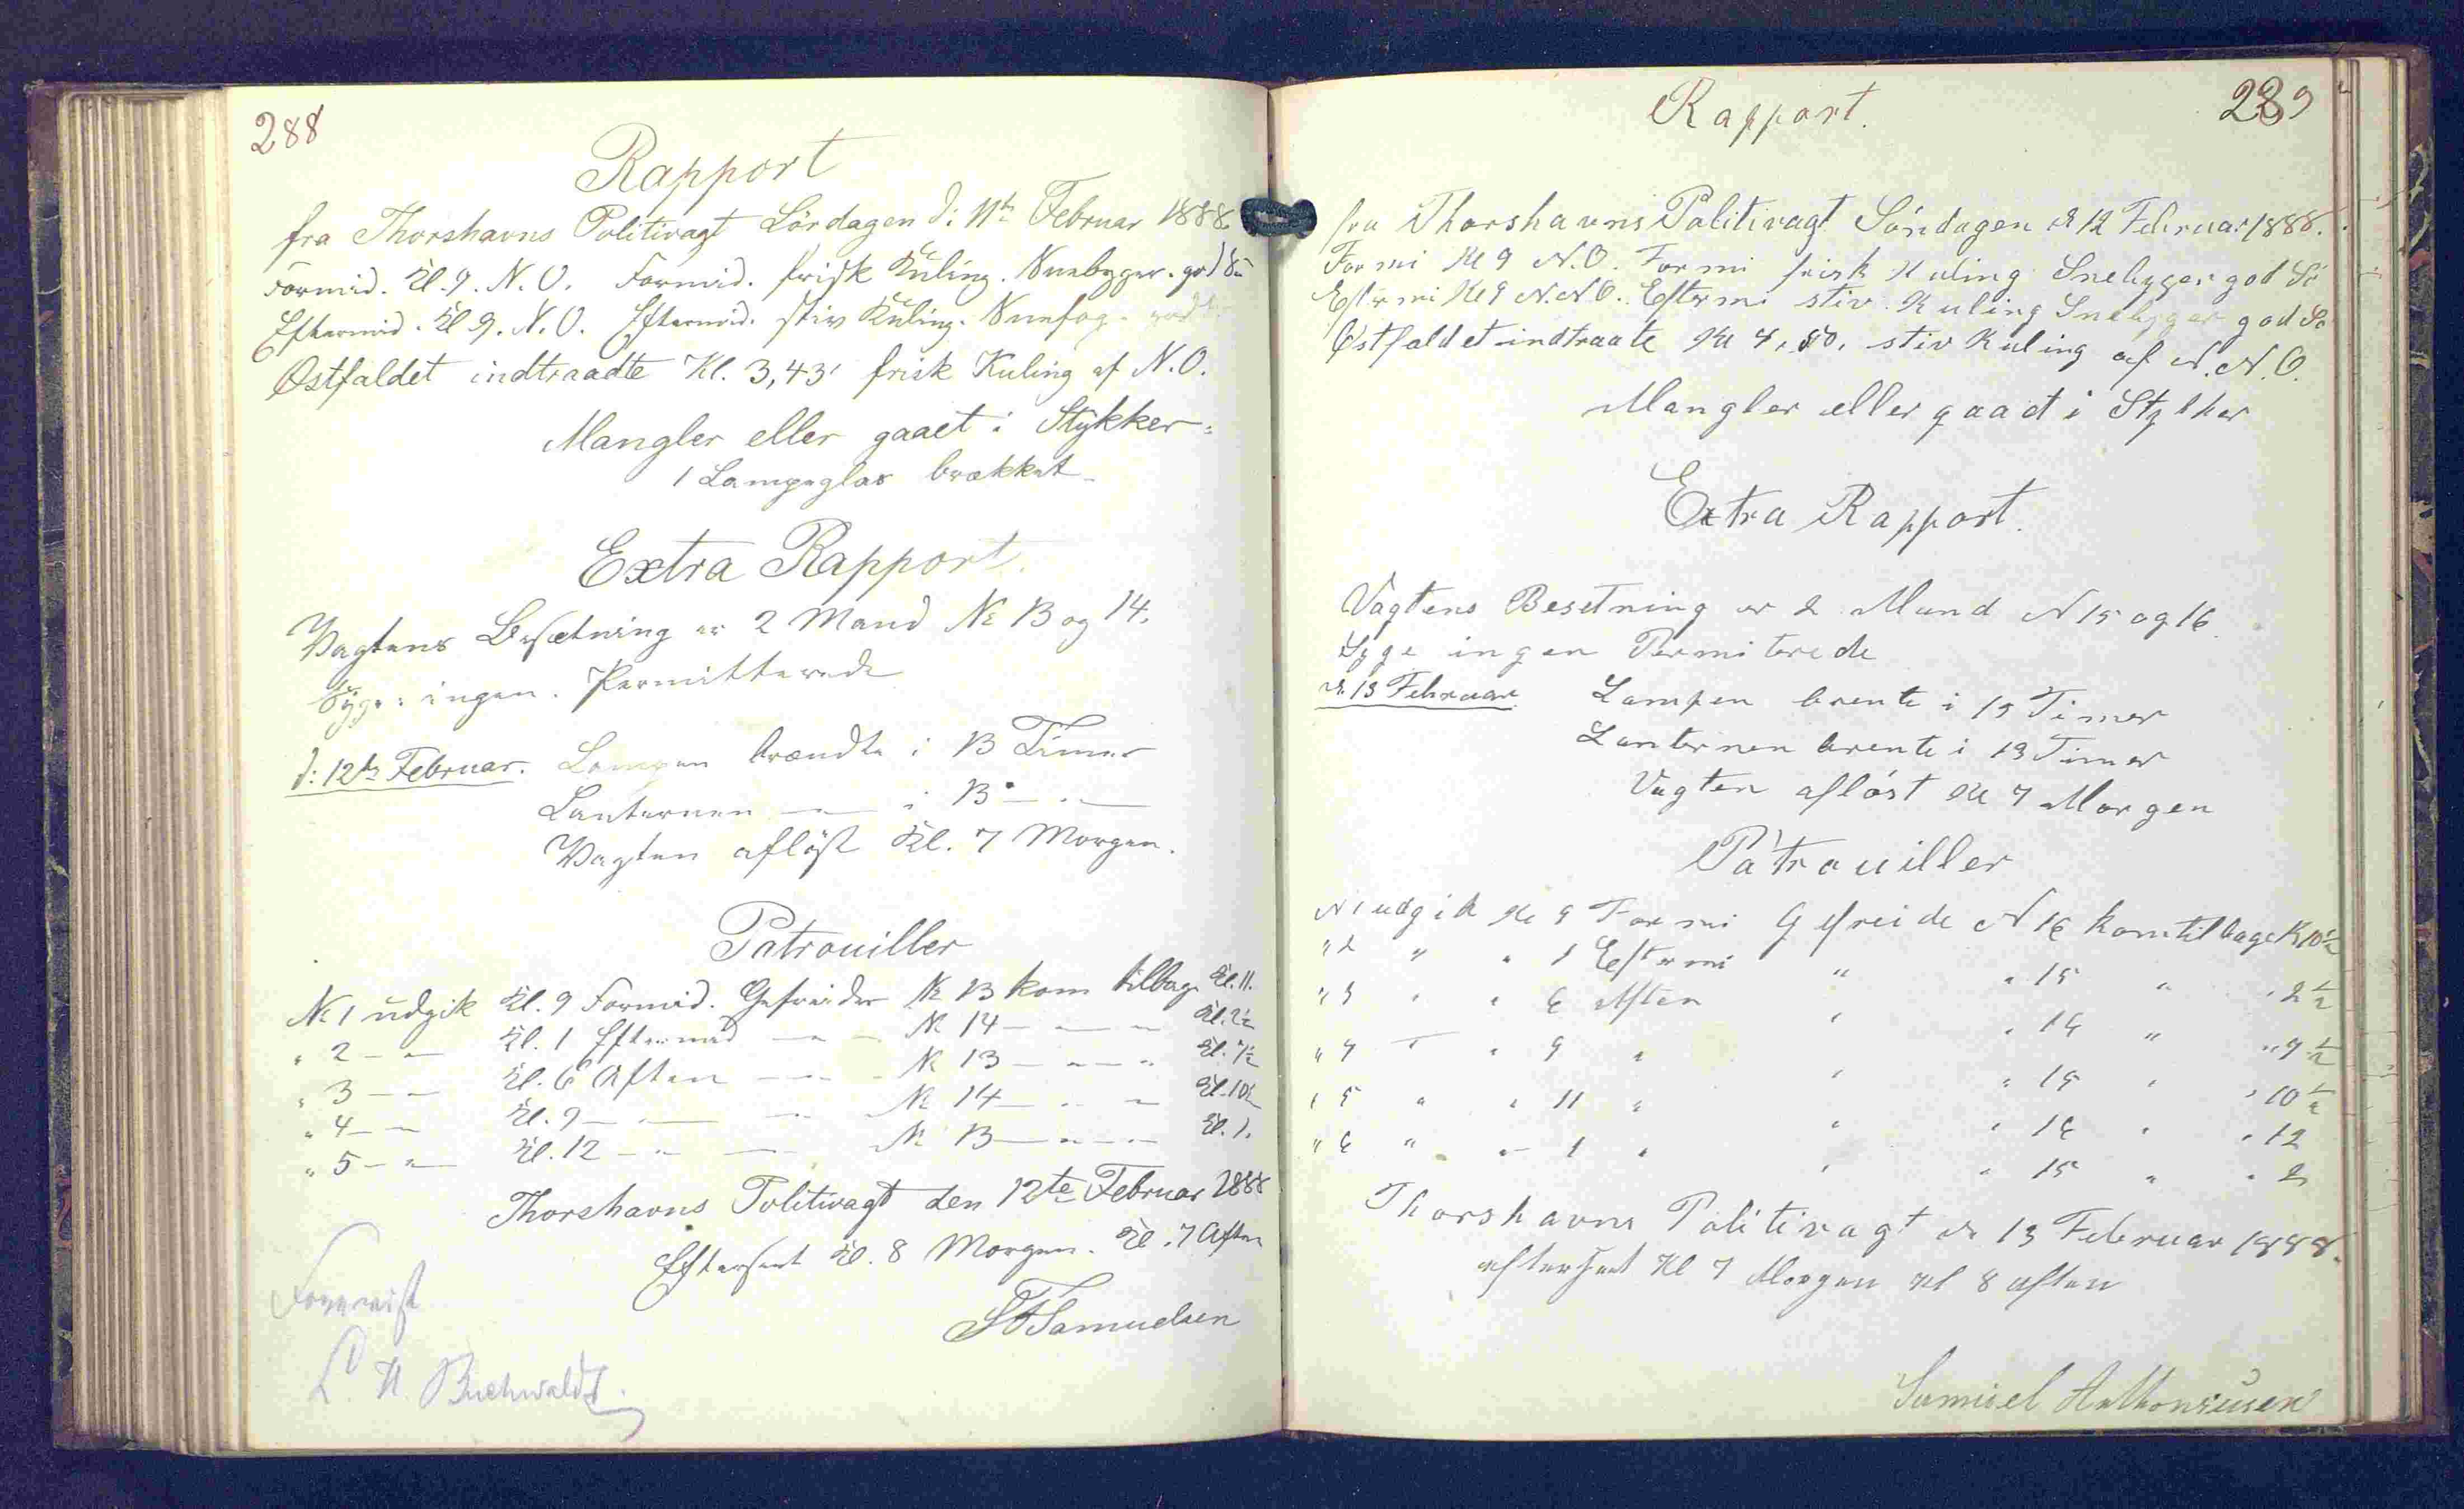 288
Rapport
fra Thorshavns Politivagt Lördagen d: 11te Februar 1888.
Formid. Kl. 9. N. O. Formid. frisk Kuling. Sneebyger. god Sü
Eftermid. Kl 9. N. O. Eftermid. stiv Kuling. Sneefog.
Østfaldet indtraadte Kl. 3,43' frisk Kuling af N. O.
Mangler eller gaaet i Stykker:
1 Lampeglas brækket
Extra Rapport.
Vagtens Besætning er 2 Mand № 13 og 14.
Syge: ingen. Permitterede
d: 12te Februar. Lampen brændte i 13 Timer
Lanternen — " — i 13 — " —
Vagten aflöst Kl. 7 Morgen.
Patrouiller
№ 1 udgik Kl. 9 Formid. Gefreider № 13 kom tilbage Kl. 11.
" 2 — " — Kl. 1 Eftermid — " — № 14 — " — " Kl. 2½
" 3 — " — Kl. 6 Aften — " — № 13 — " — " Kl. 7½
" 4 — " — Kl. 9 — " — — " — № 14 — " — " Kl. 10½
" 5 — " — Kl. 12 — " — — " — № 13 — " — " Kl. 1.
Thorshavns Politivagt den 12te Februar 1888
Efterseet Kl. 8 Morgen. Kl. 7 Aften
Samuelsen
Forevist
L. H. Buchwaldt.
289
Rapport.
fra Thorshavns Politivagt Söndagen d 12 Februar 1888.
Formi Kl 9 N.O. Formi frisk Kuling Snebyger god Sö
Eftermi Kl 9 N.N.O. Eftermi stiv Kuling Snebyger god So
Østfaldet indtraate Kl 4,50, stiv Kuling af N.N.O.
Mangler eller gaaet i Stykker
Extra Rapport.
Vagtens Besetning er 2 Mand N 15 og 16
Syge ingen Permiterede
d. 13 Februar. Lampen brente i 15 Timer
Lanternen brente i 13 Timer
Vagten aflöst Kl 7 Morgen
Patrouiller
N 1 udgik Kl 9 Formi Gefreide N 16 kom tilbage K 10½
" 2 " " 1 Eftermi " " 15 " " 2½
" 3 " " 6 Aften " " 16 " " 7½
" 4 " " 9 " " " 15 " " 10½
" 5 " " 11 " " " 16 " " 12
" 6 " " 1 " " " 15 " " 2
Thorshavns Politivagt d 13 Februar 1888.
efterseet Kl 7 Morgen Kl 8 aften
Samuel